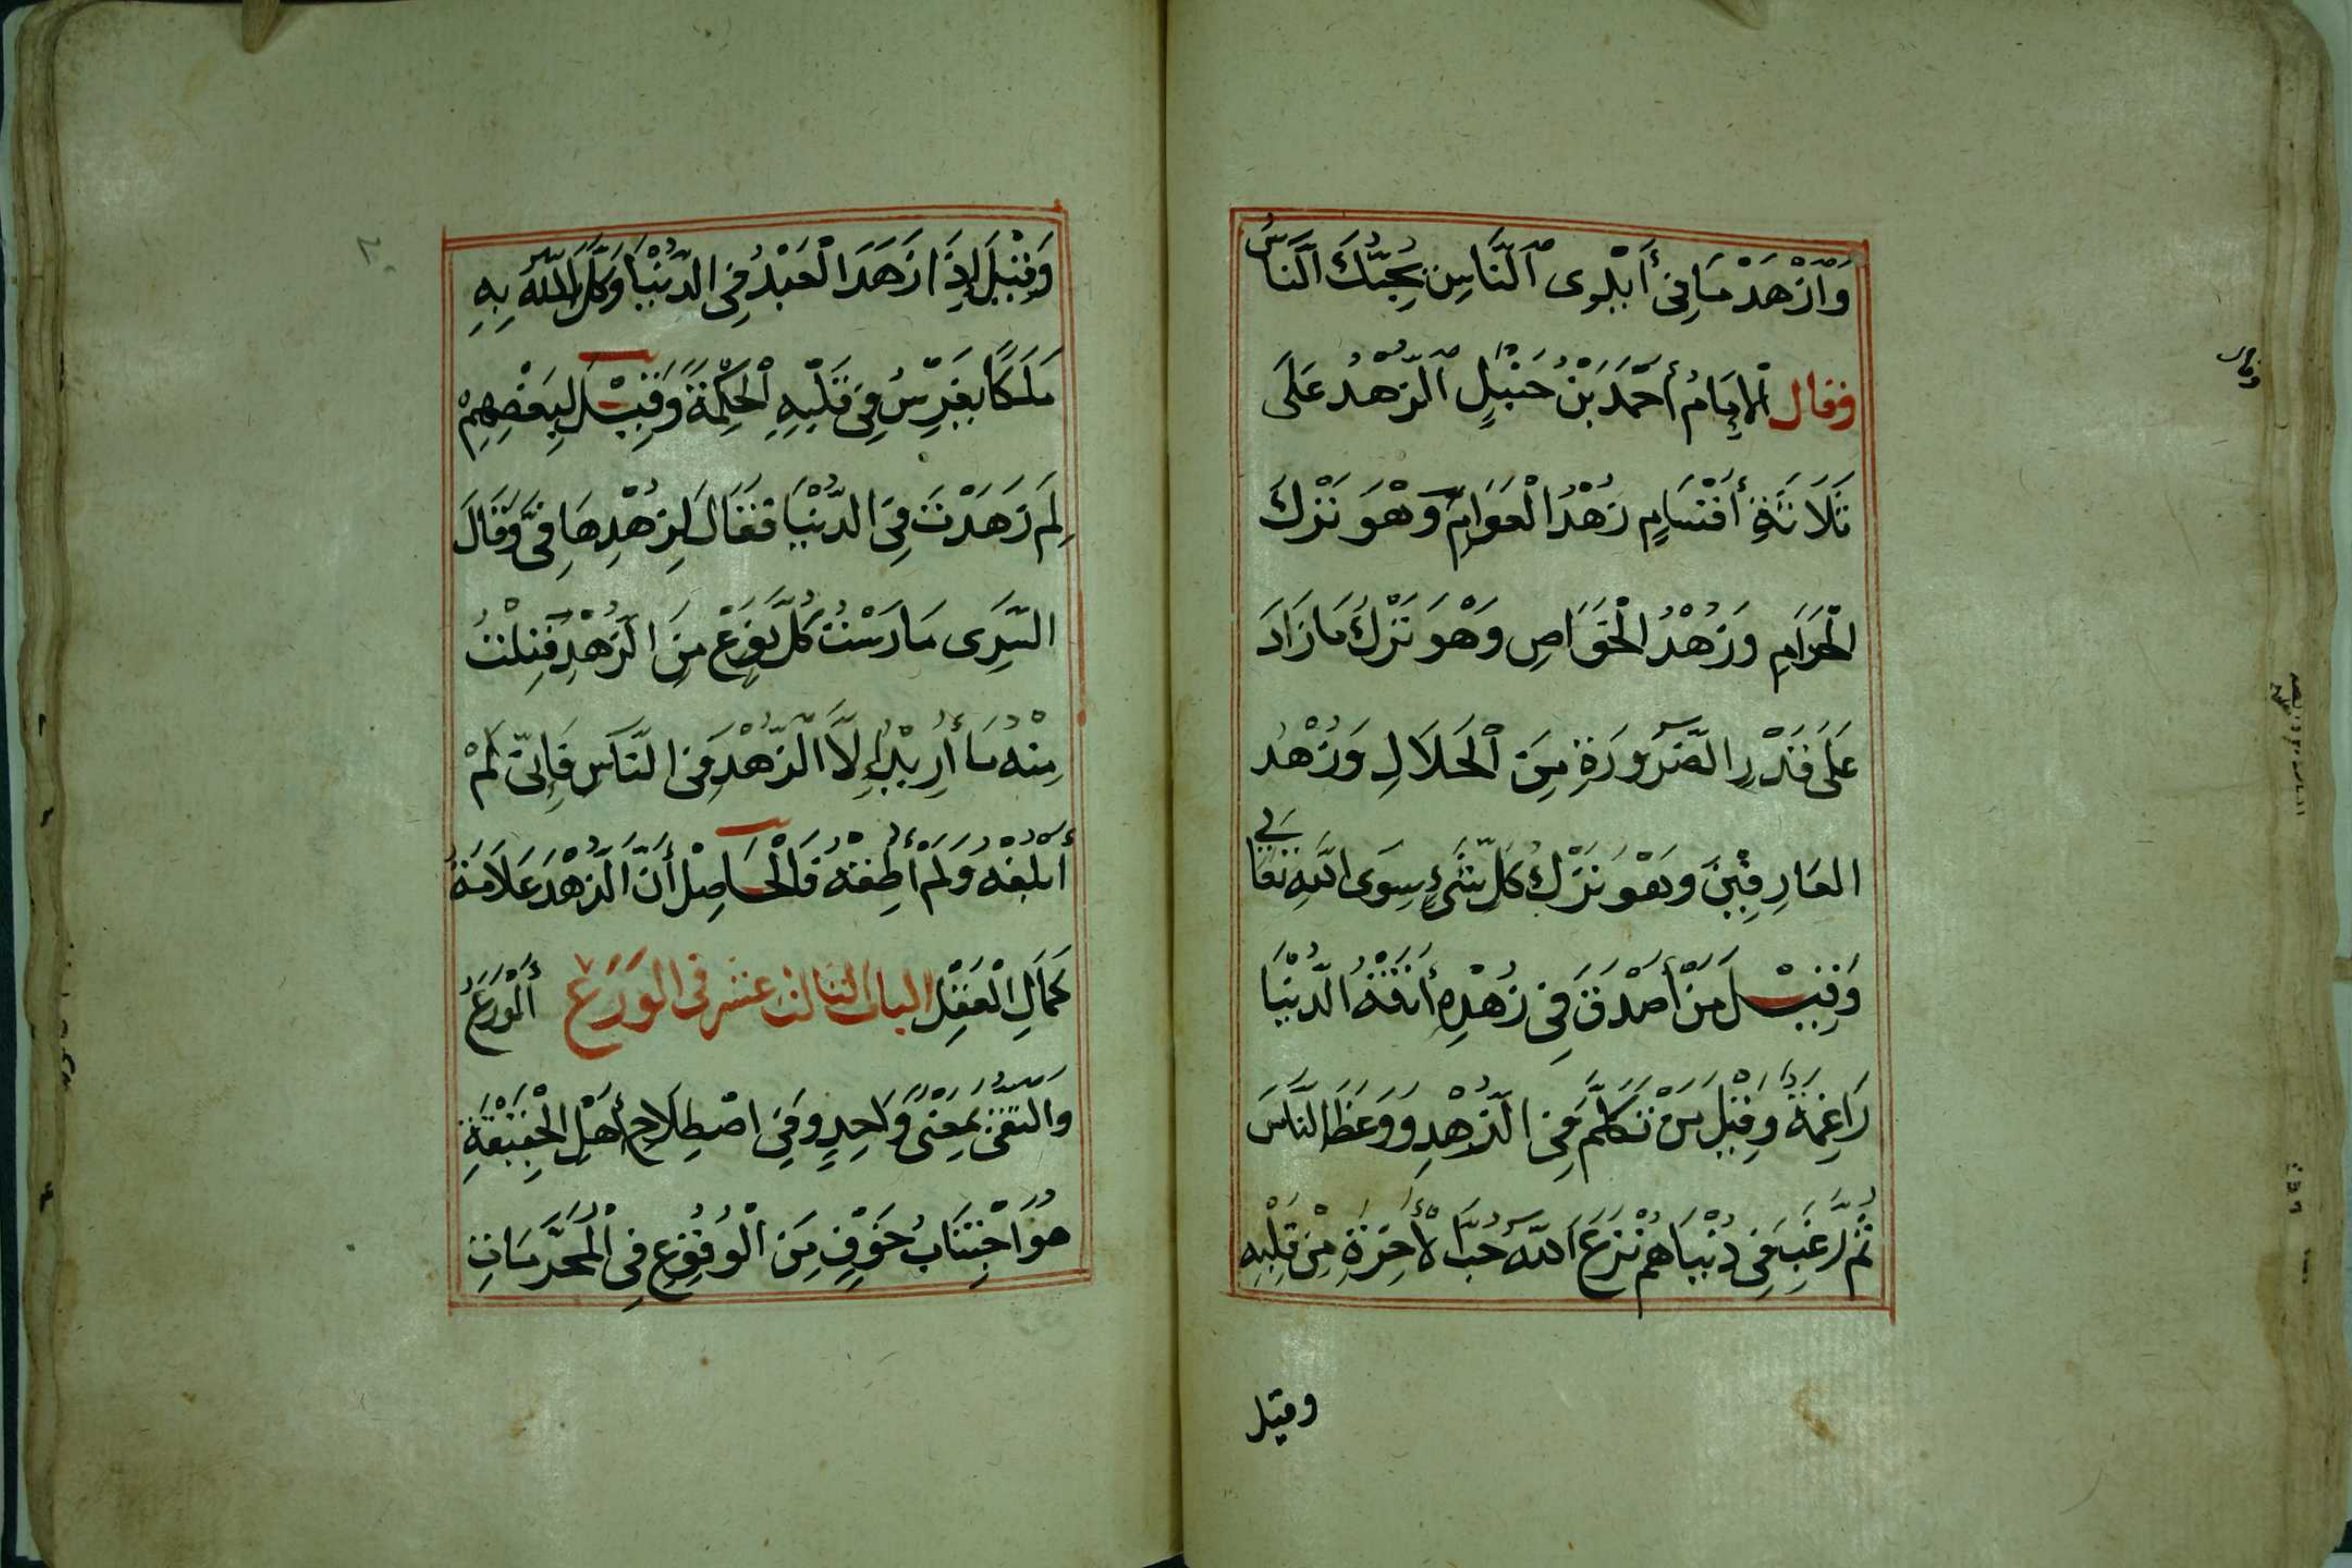 وَٱزْهَدْ مَا فِى أَيْدِى ٱلنَّاسِ يُحِبُّكَ ٱلنَّاسُ
فقال ٱلإِمَامُ أَحْمَدُ بْنُ حَنْبَلٍ ٱلزُّهْدُ عَلَى
ثَلَاثَةِ أَقْسَامٍ زُهْدُ الْعَوَامِّ وَهْوَ تَرْكُ
الْحَرَامِ وَزُهْدُ الْخَوَاصِ وَهْوَ تَرْكُ مَا زَادَ
عَلَى قَدْرِ الضَّرُورَةِ مِنَ ٱلْحَلَالِ وَزُهْدُ
العَارِفِيْنَ وَهْوَ تَرْكُ كُلِّ شَىْءٍ سِوَى اللَّهِ تَعَالَى
وَقِيْلَ مَنْ أَصْدَقَ فِى زُهْدِهِ أَتَتْهُ الدُّنْيَا
رَاغِمَةً وَقِيْلَ مَنْ تَكَلَّمَ فِى الزُّهْدِ وَوَعَظَ النَّاسَ
ثُمَّ رَغِبَ فِى دُنْيَاهُمْ نَزَعَ اَللَّهُ حُبَّ الْأَخِرَةِ مِنْ قَلْبِهِ
وقيل
وَقِيْلَ إِذَا زَهَدَ الْعَبْدُ فِى الدُّنْيَا وَكَّلَ اللَّهُ بِهِ
مَلَكًا يَغْرِسُ فِى قَلْبِهِ ٱلْحِكْمَةَ وَقِيْلَ لِبَعْضِهِمْ
لِمَ زَهَدْتَ فِى الدُّنْيَا فَقَالَ لِزُهْدِهَا فِىَّ وَقَالَ
السَّرِى مَارَسْتُ كُلَّ نَوْعٍ مِنَ الزُّهْدِ فَنِلْتُ
مِنْهُ مَا أُرِيْدُ إِلَّا الزُّهْدَ فِى النَّاسِ فَإِنِّى لَمْ
أَبْلُغْهُ وَلَمْ أُطِقْهُ فَالْحَاصِلُ أَنَّ الزُّهْدَ عَلَامَةُ
كَمَالِ الْعَقْلِ الباب الثالث عشر فى الوَرَعْ أَلْوَرَعُ
والتقى بِمَعْنًى وَاحِدٍ وَفِى اصْطِلَاحِ أَهْلِ الْحَقِيْقَةِ
هُوَ اجْتِنَابُ خَوْفٍ مِنَ الْوُقُوْعِ فِى الْمُحَرَّمَاتِ